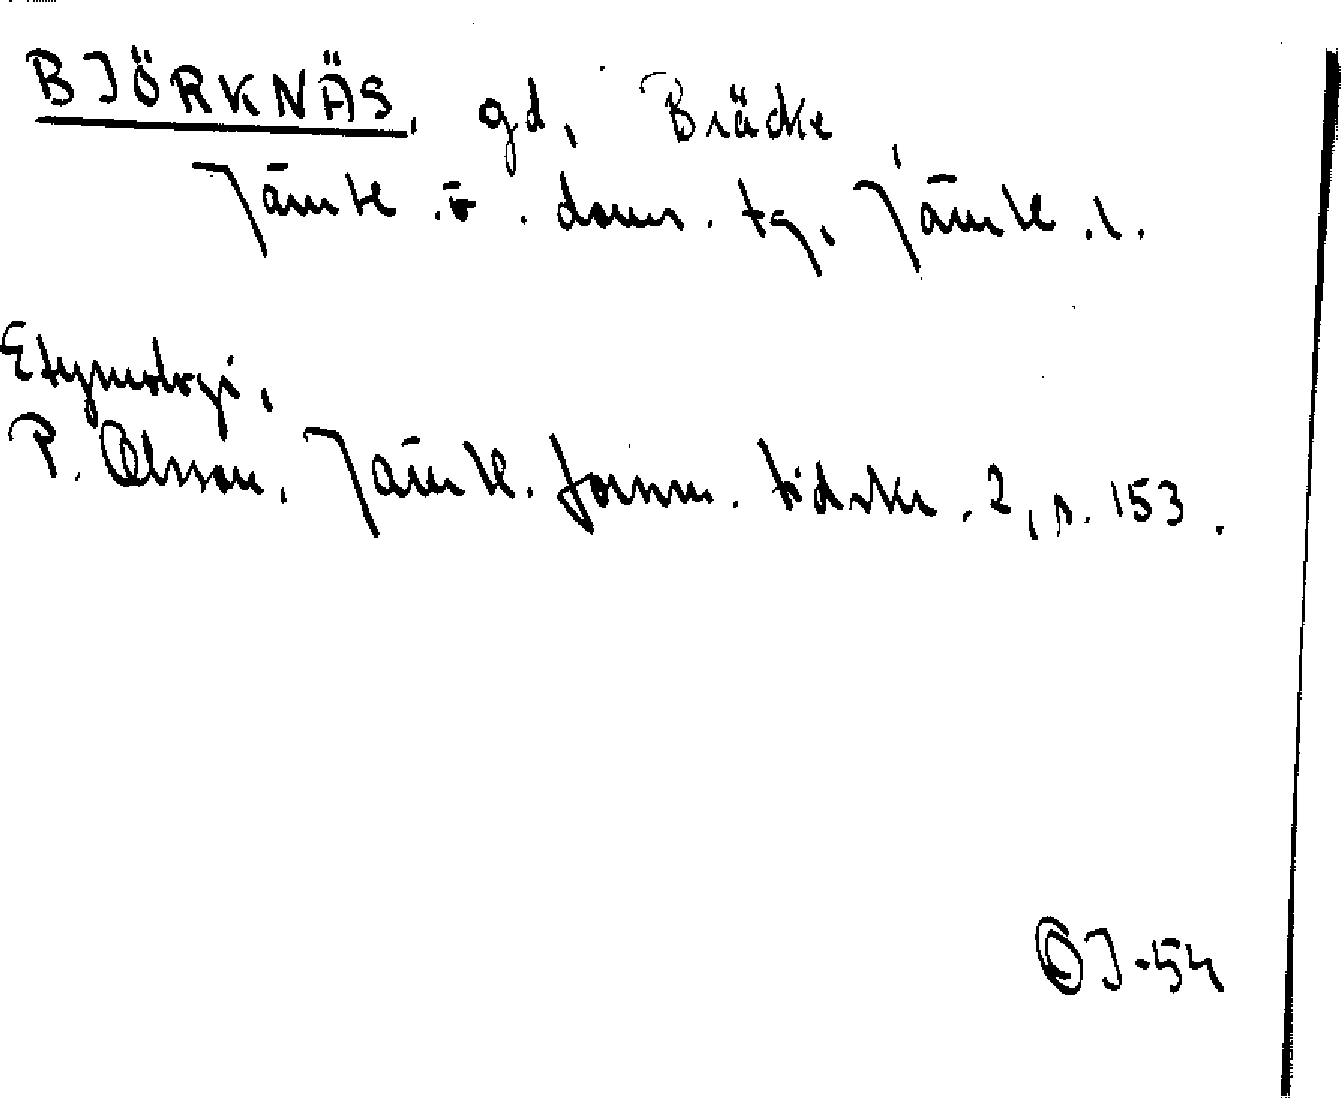 BJÖRKNÄS, gd, Bräcke
Jämtl. ö. doms. tg, Jämtl. l.
Etymologi.
P. Olsson, Jämtl. fornm. tidskr. 2, s. 153.
OJ-54